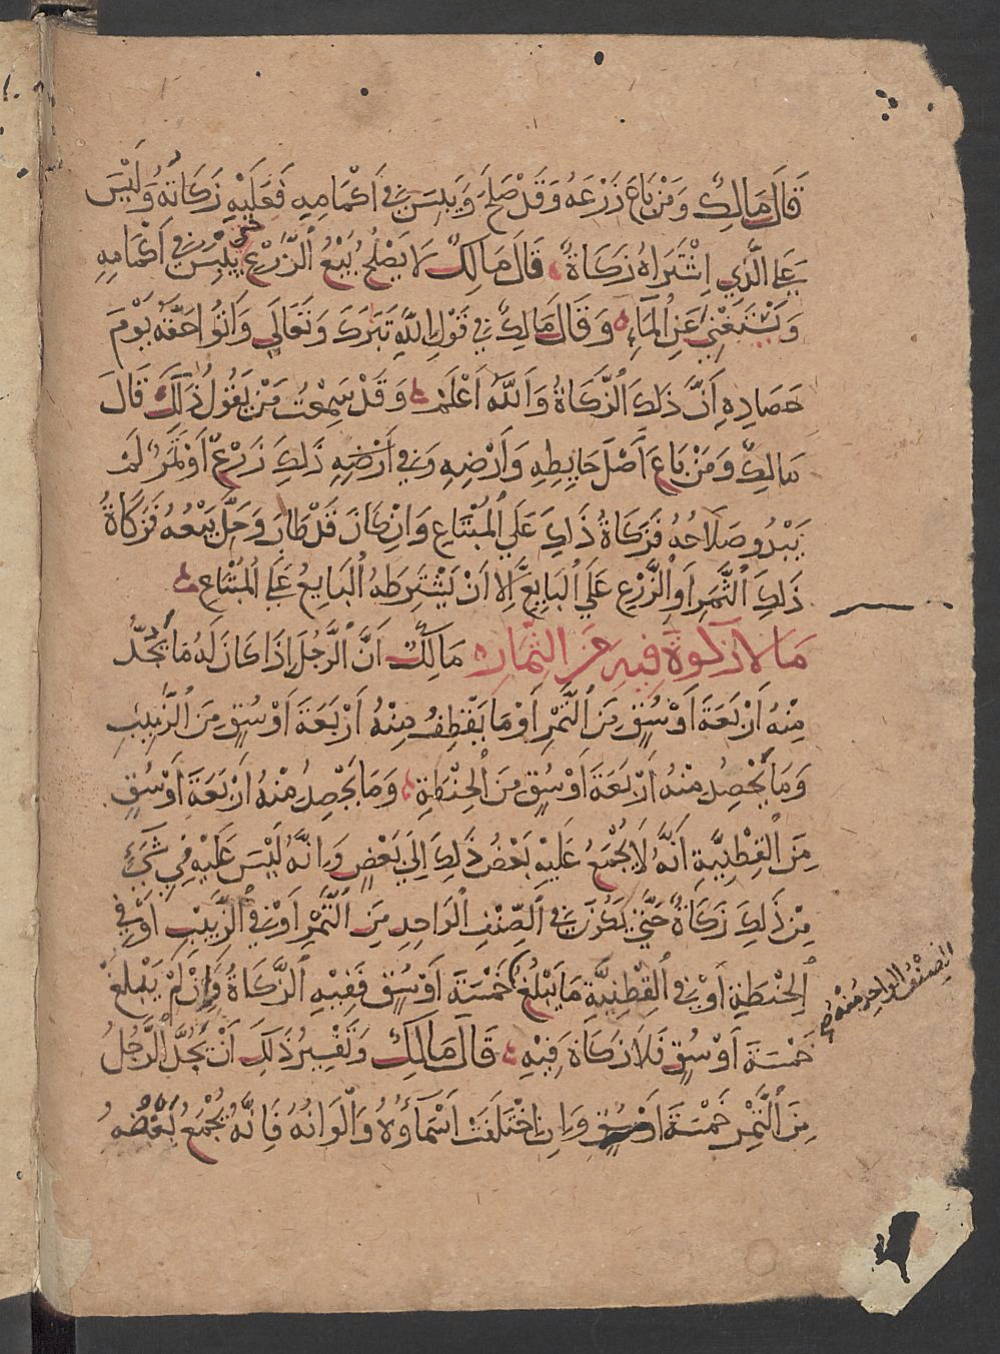 قَالَ مَالِكٌ وَمَنْ بَاعَ زَرْعَهُ وَقَدْ صَلَحَ وَيَبِسَ فِي أَكْمَامِهِ فَعَلَيْهِ زَكَاتُهُ وَلَيْسَ
عَلَى الَّذِي اِشْتَرَاهُ زَكَاةٌ قَالَ مَالِكٌ لَا يَصْلُحُ بَيْعُ الزَّرْعِ حَتَّى يَيْبَسَ فِي أَكْمَامِهِ
وَيَسْتَغْنِيَ عَنِ الْمَاءِ وَقَالَ مَالِكٌ فِي قَوْلِ اللَّهِ تَبَرَكَ وَتَعَالَى وَآتُوا حَقَّهُ يَوْمَ
حَصَادِهِ أَنَّ ذَلِكَ الزَّكَاةُ وَاللَّهُ أَعْلَمُ وَقَدْ سَمِعْتُ مَنْ يَقُولُ ذَلِكَ قَالَ
مَالِكٌ وَمَنْ بَاعَ أَصْلَ حَايِطِهِ وَأَرْضِهِ وَفِي أَرْضِهِ ذَلِكَ زَرْعٌ أَوْ ثَمَرٌ لَمْ
يَبْدُو صَلَاحُهُ فَزَكَاةُ ذَلِكَ عَلَى الْمُبْتَاعِ وَإِنْ كَانَ قَدْ طَابَ وَحَلَّ بَيْعُهُ فَزَكَاةُ
ذَلِكَ الثَّمَرِ أَوِ الزَّرْعِ عَلَى الْبَايِعِ إِلَّا أَنْ يَشْتَرِطَهُ الْبَايِعُ عَلَى الْمُبْتَاعِ
مَا لَا زَكَوةَ فِيهِ مِنَ الثِّمَارِ مَالِكٌ أَنَّ الرَّجُلَ إِذَا كَانَ لَهُ مَا يَجُدُّ
مِنْهُ أَرْبَعَةَ أَوْسُقٍ مِنَ التَّمْرِ أَوْ مَا يَقْطِفُ مِنْهُ أَرْبَعَةَ أَوْسُقٍ مِنَ الزَّبِيبِ
وَمَا يَحْصِدُ مِنْهُ أَرْبَعَةَ أَوْسُقٍ مِنَ الْحِنْطَةِ وَمَا يَحْصِدُ مِنْهُ أَرْبَعَةَ أَوْسُقٍ
مِنَ الْقِطْنِيَّةِ أَنَّهُ لَا يُجْمَعُ عَلَيْهِ بَعْضُ ذَلِكَ إِلَى بَعْضٍ وَإِنَّهُ لَيْسَ عَلَيْهِ فِي شَيْءٍ
مِنْ ذَلِكَ زَكَاةٌ حَتَّى يَكُونَ فِي الصِّنْفِ الْوَاحِدِ مِنَ التَّمْرِ أَوْ فِي الزَّبِيبِ أَوْ فِي
الْحِنْطَةِ أَوْ فِي الْقِطْنِيَّةِ مَا يَبْلُغُ خَمْسَةَ أَوْسُقٍ فَفِيهِ الزَّكَاةُ وَإِنْ لَمْ يَبْلُغْ
الصنف الواحد منه
خَمْسَةَ أَوْسُقٍ فَلَا زَكَاةَ فِيهِ قَالَ مَالِكٌ وَتَفْسِيرُ ذَلِكَ أَنْ يَجُدَّ الرَّجُلُ
مِنَ التَّمْرِ خَمْسَةَ أَوْسُقٍ وَإِنِ اخْتَلَفَتْ أَسْمَاؤُهُ وَأَلْوَانُهُ فَإِنَّهُ يُجْمَعُ بَعْضُهُ